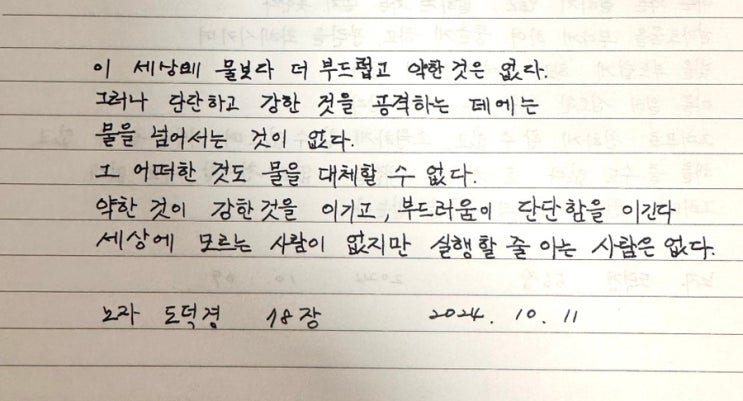 이 세상에 물보다 더 부드럽고 약한 것은 없다.
그러나 단단하고 강한 것을 공격하는 데에는
물을 넘어서는 것이 없다.
그 어떠한 것도 물을 대체할 수 없다.
약한 것이 강한것을 이기고, 부드러움이 단단함을 이긴다
세상에 모르는 사람이 없지만 실행할 줄 아는 사람은 없다.
노자 도덕경 18장 2024. 10. 11